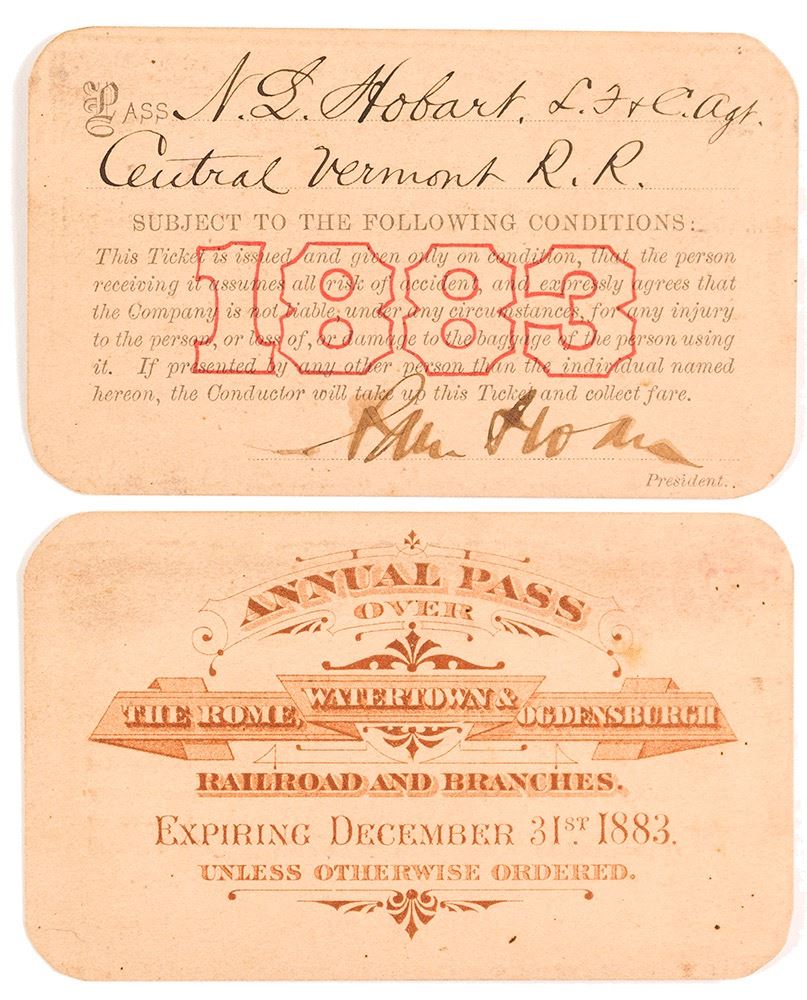 PASS N. L. Hobart, L. F. & C. Agt.
Central Vermont R. R.
SUBJECT TO THE FOLLOWING CONDITIONS:
This Ticket is issued and given only on condition, that the person
receiving it assumes all risk of accident, and expressly agrees that
the Company is not liable, under any circumstances, for any injury
to the person, or loss of, or damage to the baggage of the person using
it. If presented by any other person than the individual named
hereon, the Conductor will take up this Ticket and collect fare.
1883
President.
ANNUAL PASS
OVER
THE ROME, WATERTOWN & OGDENSBURGH
RAILROAD AND BRANCHES.
EXPIRING DECEMBER 31ST 1883.
UNLESS OTHERWISE ORDERED.